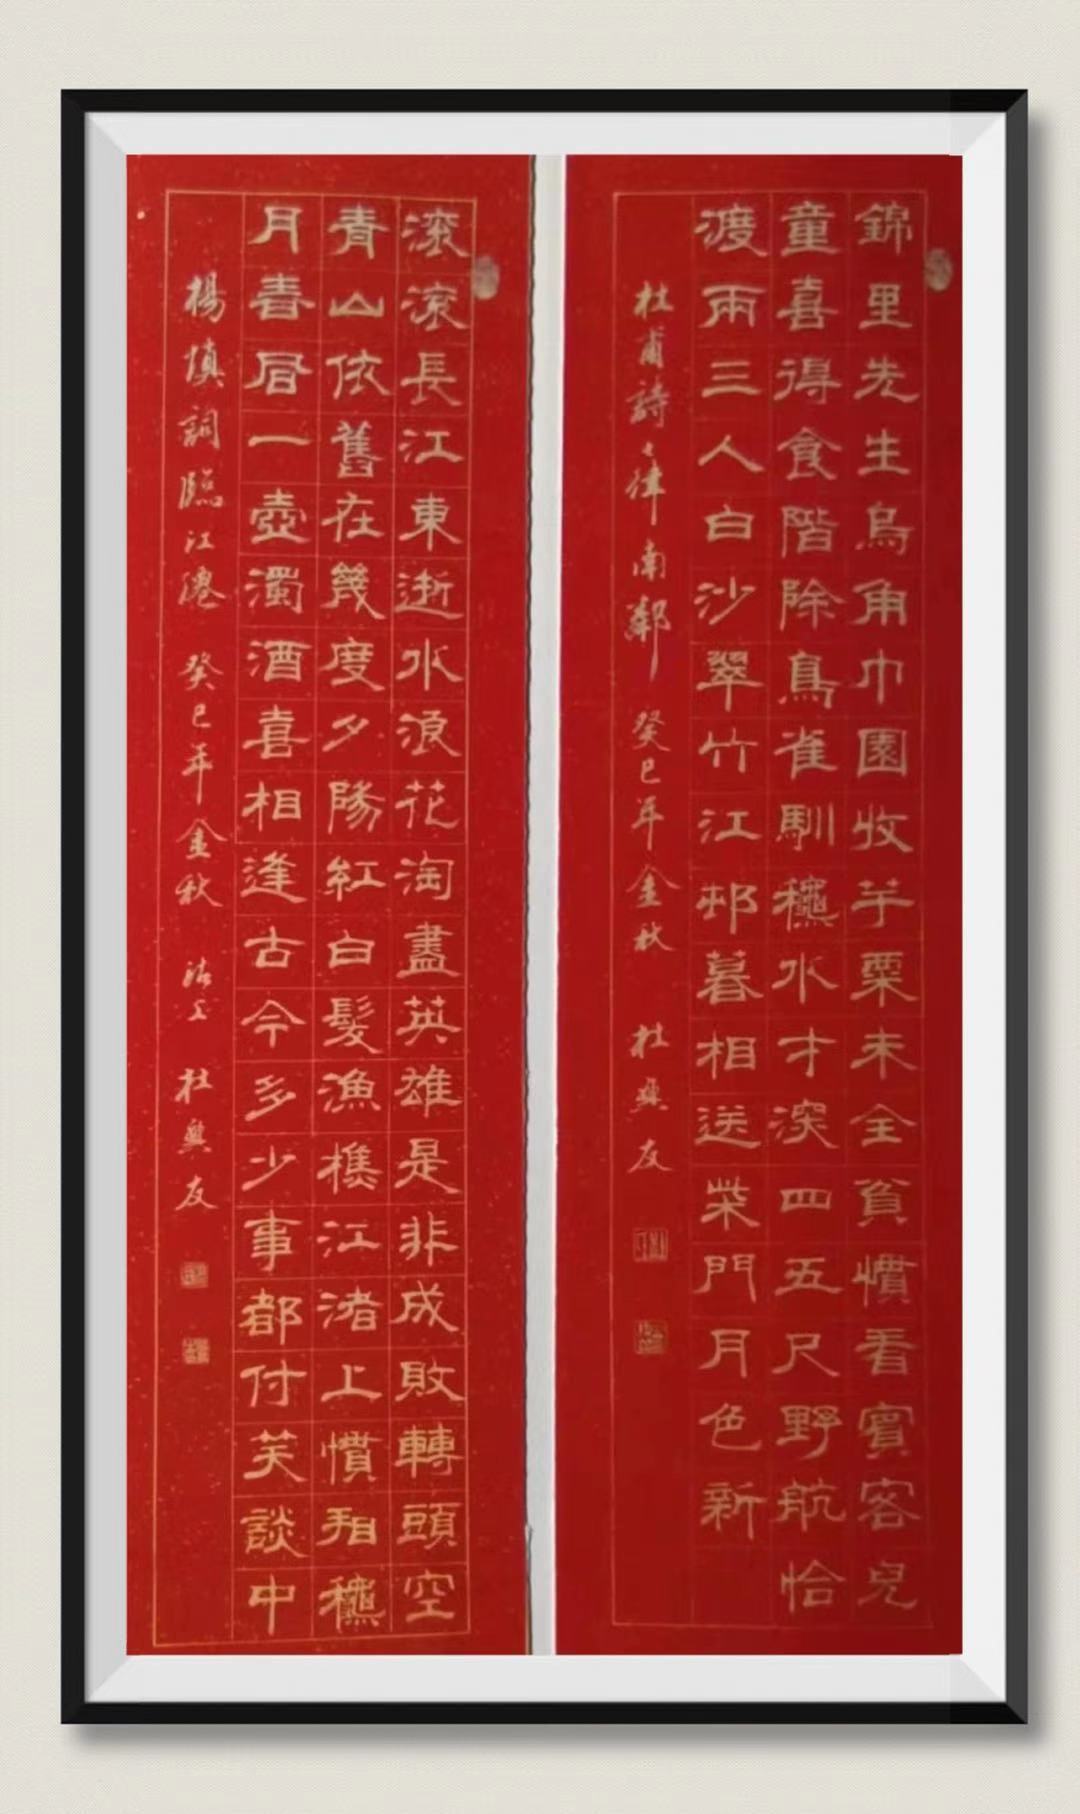 錦里先生烏角巾園收芋栗未全貧慣看賓客兒
童喜得食階除鳥雀馴龝水才深四五尺野航恰
渡兩三人白沙翠竹江邨暮相送柴門月色新
杜甫詩七律南鄰 癸巳年金秋 杜興友
滾滾長江東逝水浪花淘盡英雄是非成敗轉頭空
青山依舊在幾度夕陽紅白髮漁樵江渚上慣看龝
月春風一壺濁酒喜相逢古今多少事都付笑談中
楊慎詞臨江僊 癸巳年金秋 沽上 杜興友